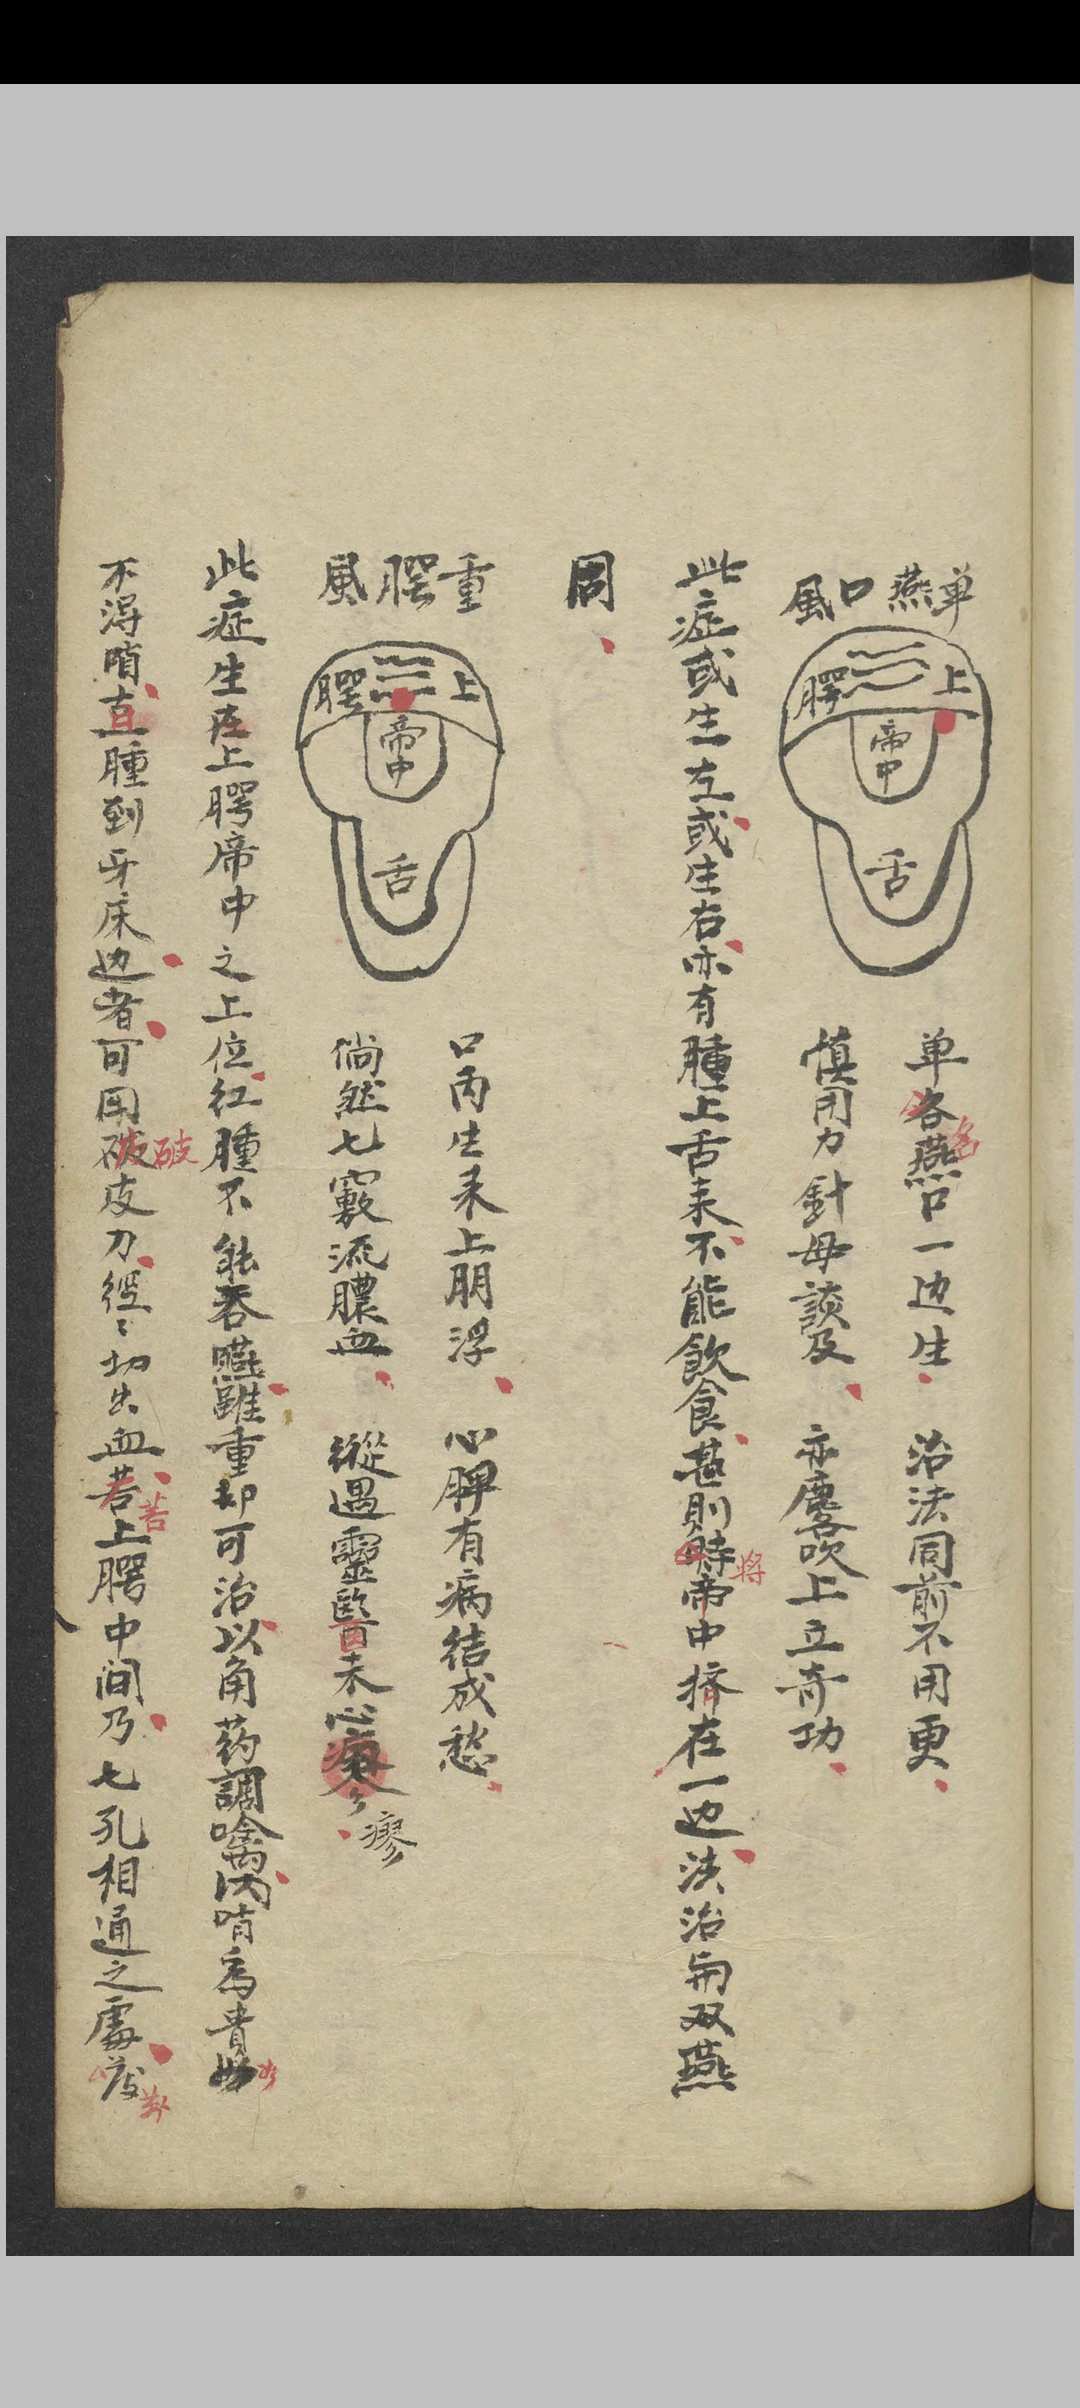 单燕口風
上腭
帝中
舌
单各燕口一边生
名
治法同前不用更
慎用刀針毋談及
亦麞吹上立奇功
此症或生左或生右亦有腫上舌来不能飲食甚則時帝中擠在一边法治與双燕
将
同
重腭風
上腭
帝中
舌
口丙生来上朋浮
心脾有病結成愁
倘然七竅流膿血
縱遇靈醫未心
瘳
此症生在上腭帝中之上位紅腫不能吞嚥雖重却可治以角药調噙丙咱為貴如
不淂啃直腫到牙床边者可用破皮刀徑〻切出血若上腭中间乃七孔相通之處
破
若